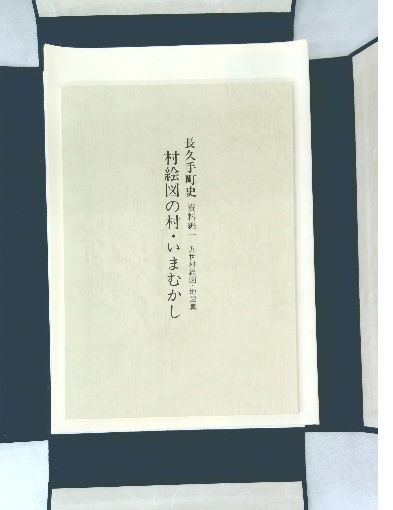 長久手町史 資料編一 近世村絵図・地図集
村絵図の村・いまむかし